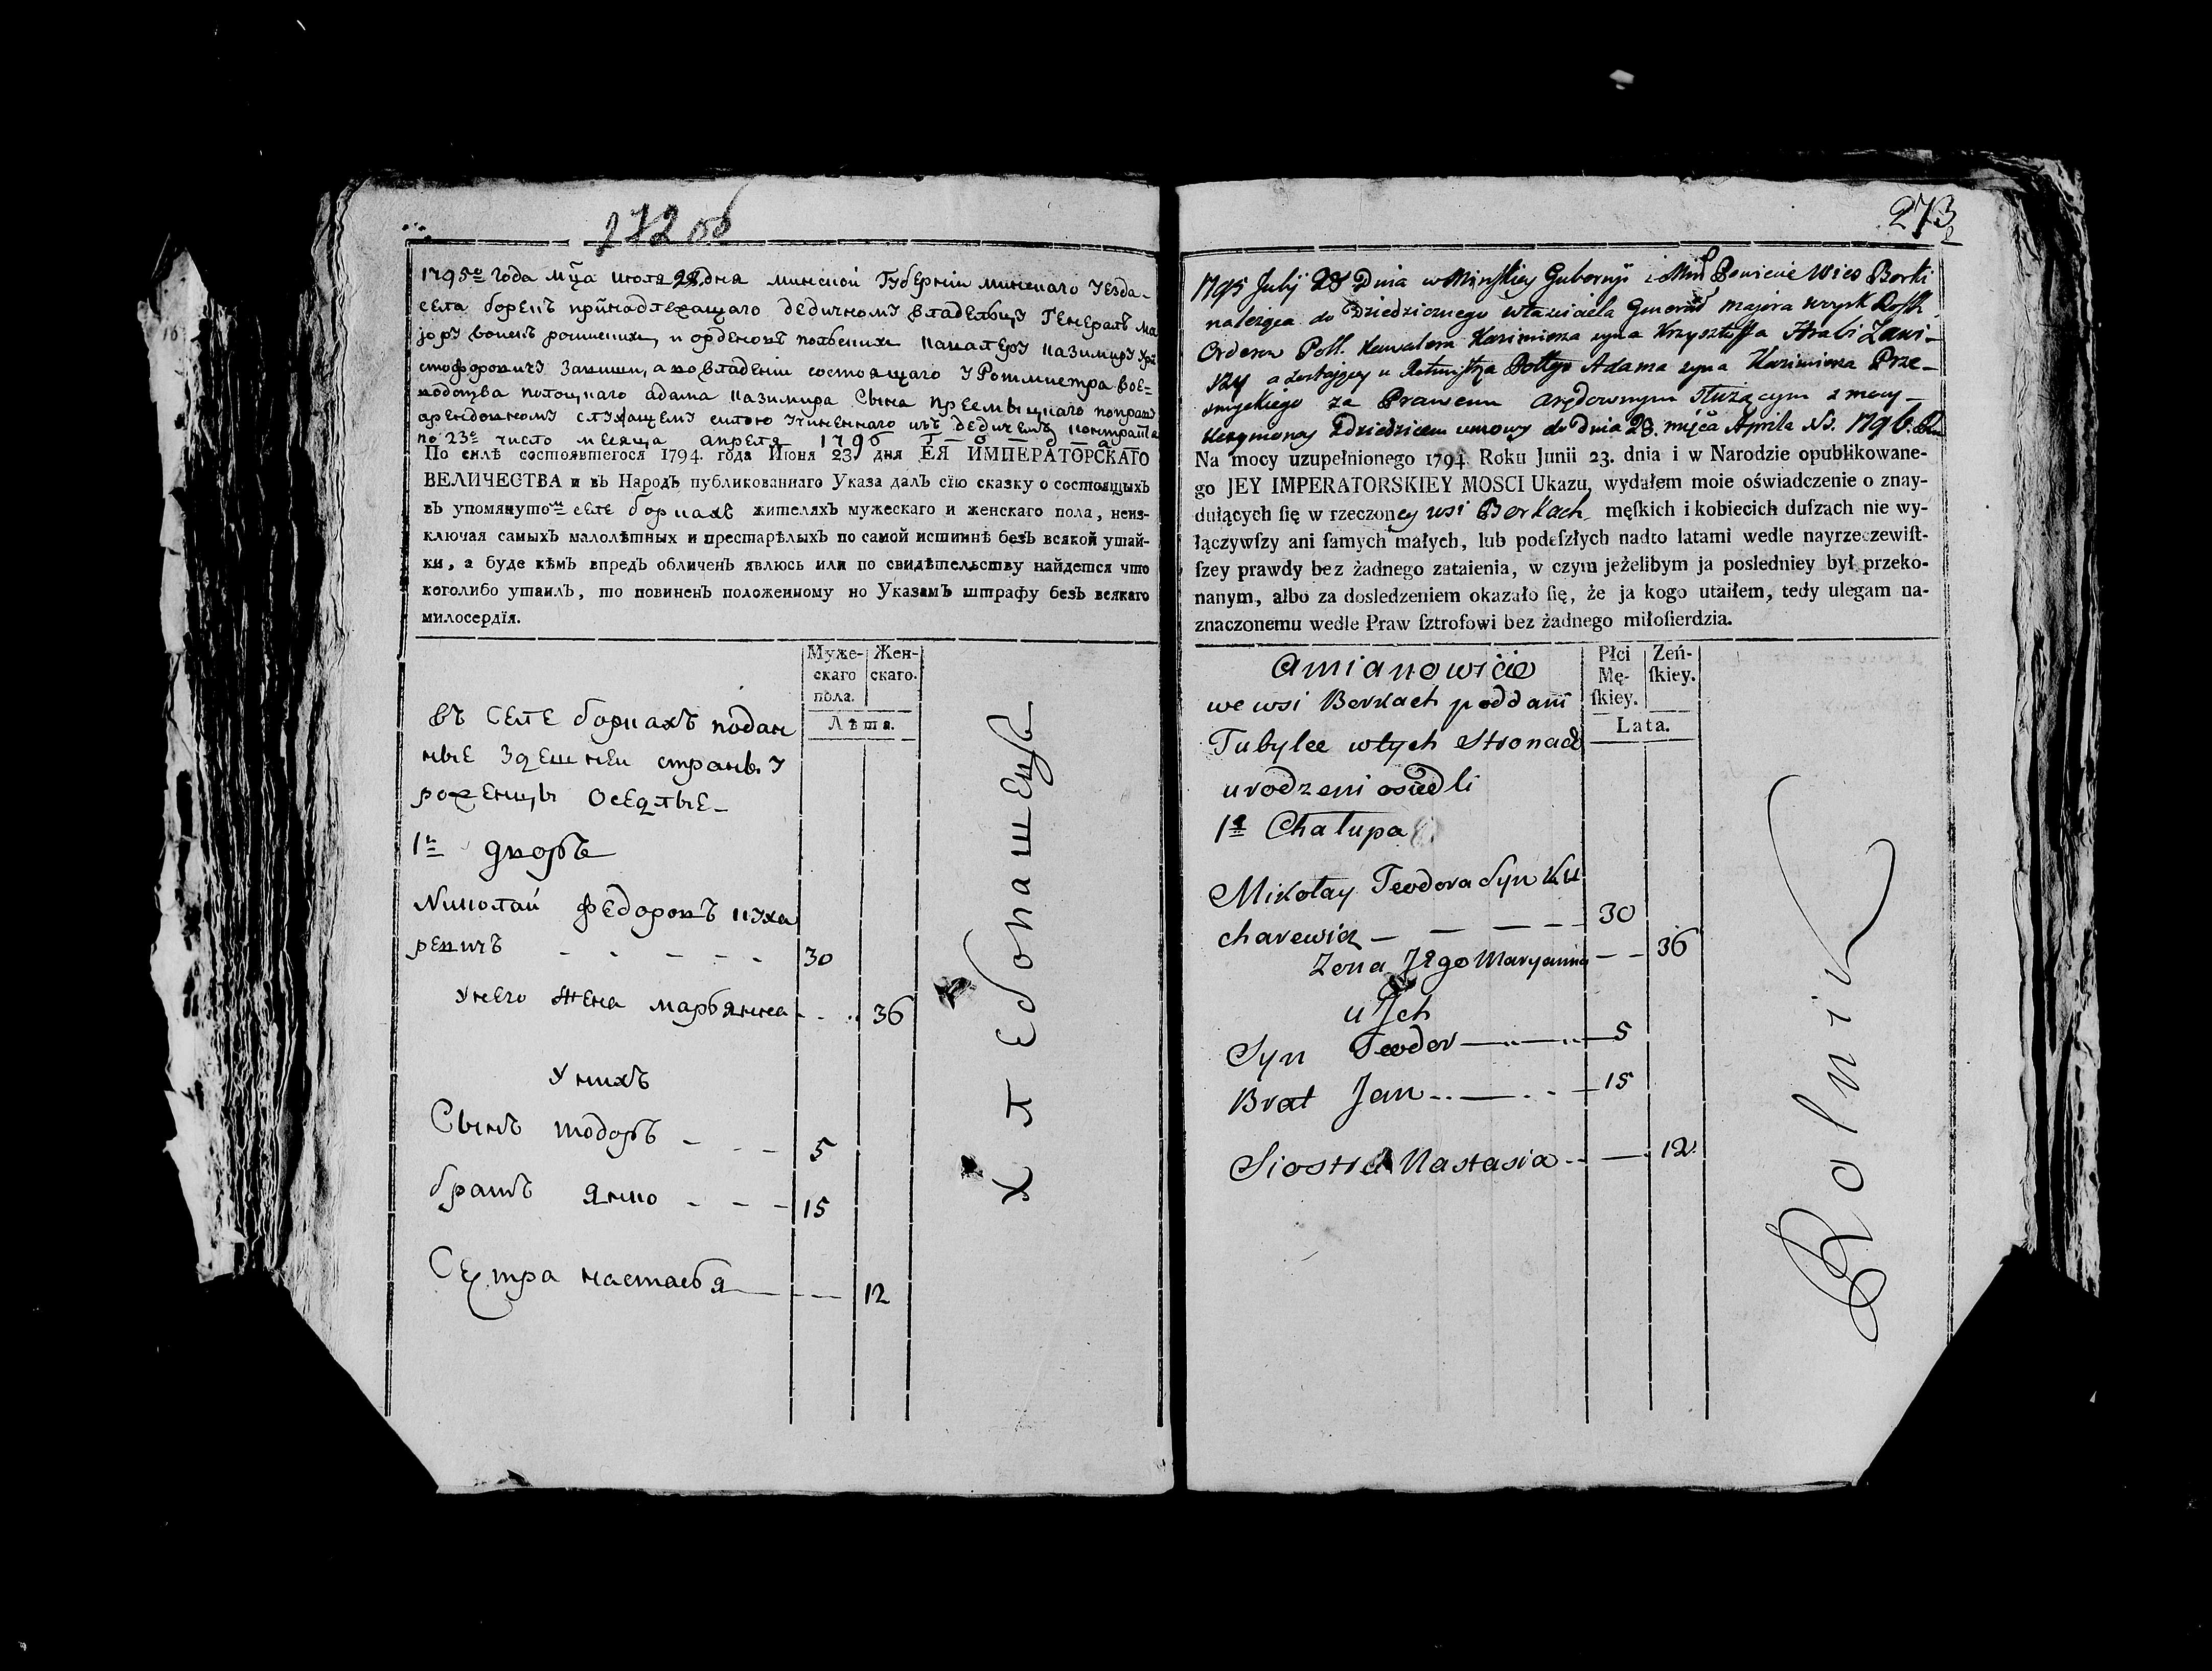 272 об
1795го года мца июля 28 дня минской Губернии минскаго уезда
села борекъ принадлежащаго дедичному владельцу Генералъ ма
иору воискъ росийскихъ, и орденовъ польскихъ кавалеру казимиру хри
стофоровичу Завиши, а во владении состоящаго у Ротмистра вое-
водства полоцкаго адама казимира Сына пресмыцкаго по праву
арендовному служащему силою учиненнаго изъ дедичемъ контракта
по 23е число месяца апреля 1796 Г о д а
По силѣ состоявшегося 1794. года Июня 23. дня ЕЯ ИМПЕРАТОРСКАГО
ВЕЛИЧЕСТВА и въ Народъ публикованнаго Указа далъ сїю сказку о состоящыхъ
въ упомянутомъ селе боркахъ жителяхъ мужескаго и женскаго пола, неиз-
ключая самыхъ малолѣтныхъ и престарѣлыхъ по самой истиннѣ безъ всякой утай-
ки, а буде кѣмъ впредь обличенъ явлюсь или по свидѣтельству найдется что
коголибо утаилъ, то повиненъ положенному по Указамъ штрафу безъ всякаго
милосердїя.
Муже- Жен-
скаго скаго.
пола.
Лѣта.
въ селе боркахъ подан
ные здешней страны у
роженцы оседлые
1й дворъ
Николай федоровъ куха
ревичъ 30
у него жена марьянна 36
у нихъ
Сынъ тодоръ 5
братъ янко 15
Сестра настасья 12
хлебопашецъ
273
1795 Julij 28 Dnia w Minskiey Gubernji i Min Powiecie Wies Borki
naleząca do Dziedzicznego właściciela Generał Majora woysk Rossk
Orderow Poll. Kawalera Kazimierza syna Krzysztoffa Hrabi Zawi-
szy a zostaiący u Rotmistrza Połłgo Adama syna Kazimierza Prze-
smyckiego za Prawem arędownym służącym z mocy
Uczynioney z dziedzicem umowy do Dnia 23. mięca Aprila NS. 1796. Ru
Na mocy uzupełnionego 1794 Roku Junii 23. dnia i w Narodzie opublikowane-
go JEY IMPERATORSKIEY MOSCI Ukazu, wydałem moie oświadczenie o znay-
duiących ſię w rzeczoney wsi Borkach męſkich i kobiecich duſzach nie wy-
łączywſzy ani ſamych małych, lub podeſzłych nadto latami wedle nayrzeczewiſt-
ſzey prawdy bez żadnego zataienia, w czym jeżelibym ja posledniey był przeko-
nanym, albo za dosledzeniem okazało ſię, że ja kogo utaiłem, tedy ulegam na-
znaczonemu wedle Praw ſztrofowi bez żadnego miłoſierdzia.
Amianowicie
we wsi Borkach poddani
Tubylce w tych Stronach
urodzeni osiedli
Płci Zeń-
Mę- ſkiey.
ſkiey.
Lata.
1a Chałupa
Mikołay Teodora Syn Ku
charewicz 30
Zona Jego Maryanna 36
u Jch
Syn Teodor 5
Brat Jan 15
Siostra Nastasia 12
Rolnik